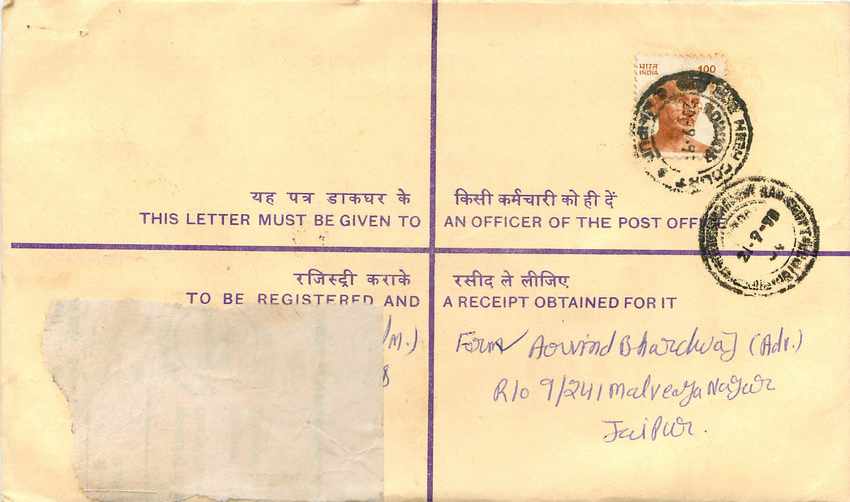 भारत 100
INDIA
HIGH COURT
21-9-98
यह पत्र डाकघर के किसी कर्मचारी को ही दें
THIS LETTER MUST BE GIVEN TO AN OFFICER OF THE POST OFFI
रजिस्ट्री कराके रसीद ले लीजिए
TO BE REGISTERED AND A RECEIPT OBTAINED FOR IT
/M.)
8
Form Aorvind Bhardwaj (Adv.)
R/o 9/241 Malveaya Nagur
Jaipur.